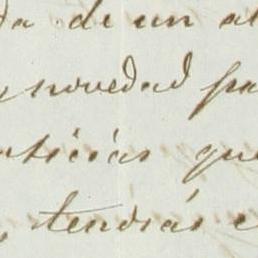 da de un al
novedad pa
noticias que
tendrás e